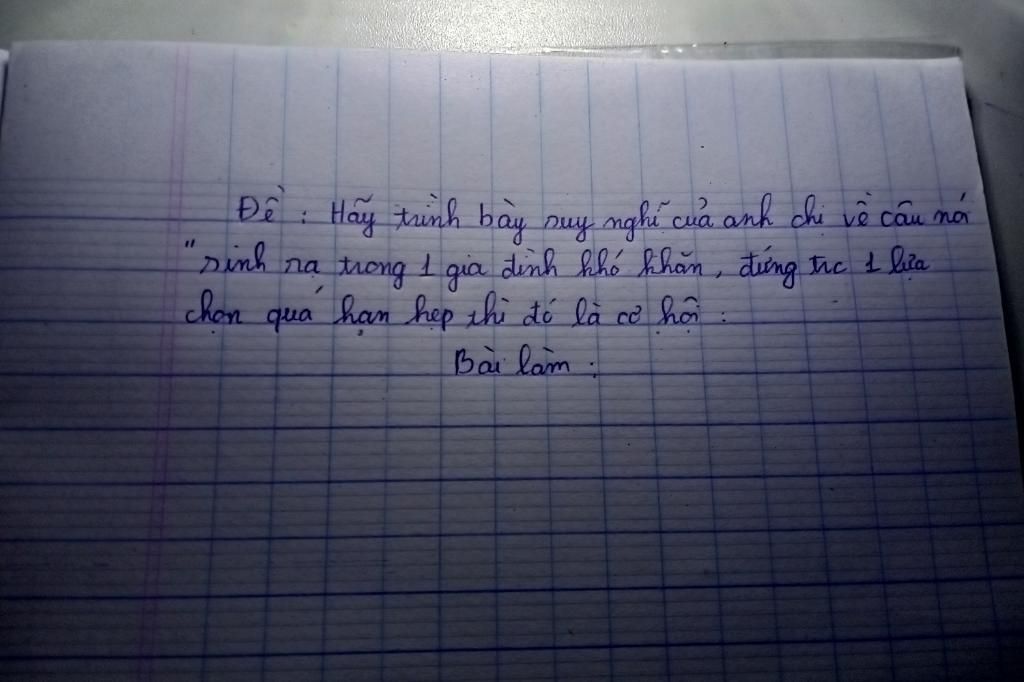 Đề : Hãy trình bày suy nghĩ của anh chị về câu nói
"sinh ra trong 1 gia đình khó khăn, đứng trc 1 lựa
chọn quá hạn hẹp thì đó là cơ hội :
Bài làm :